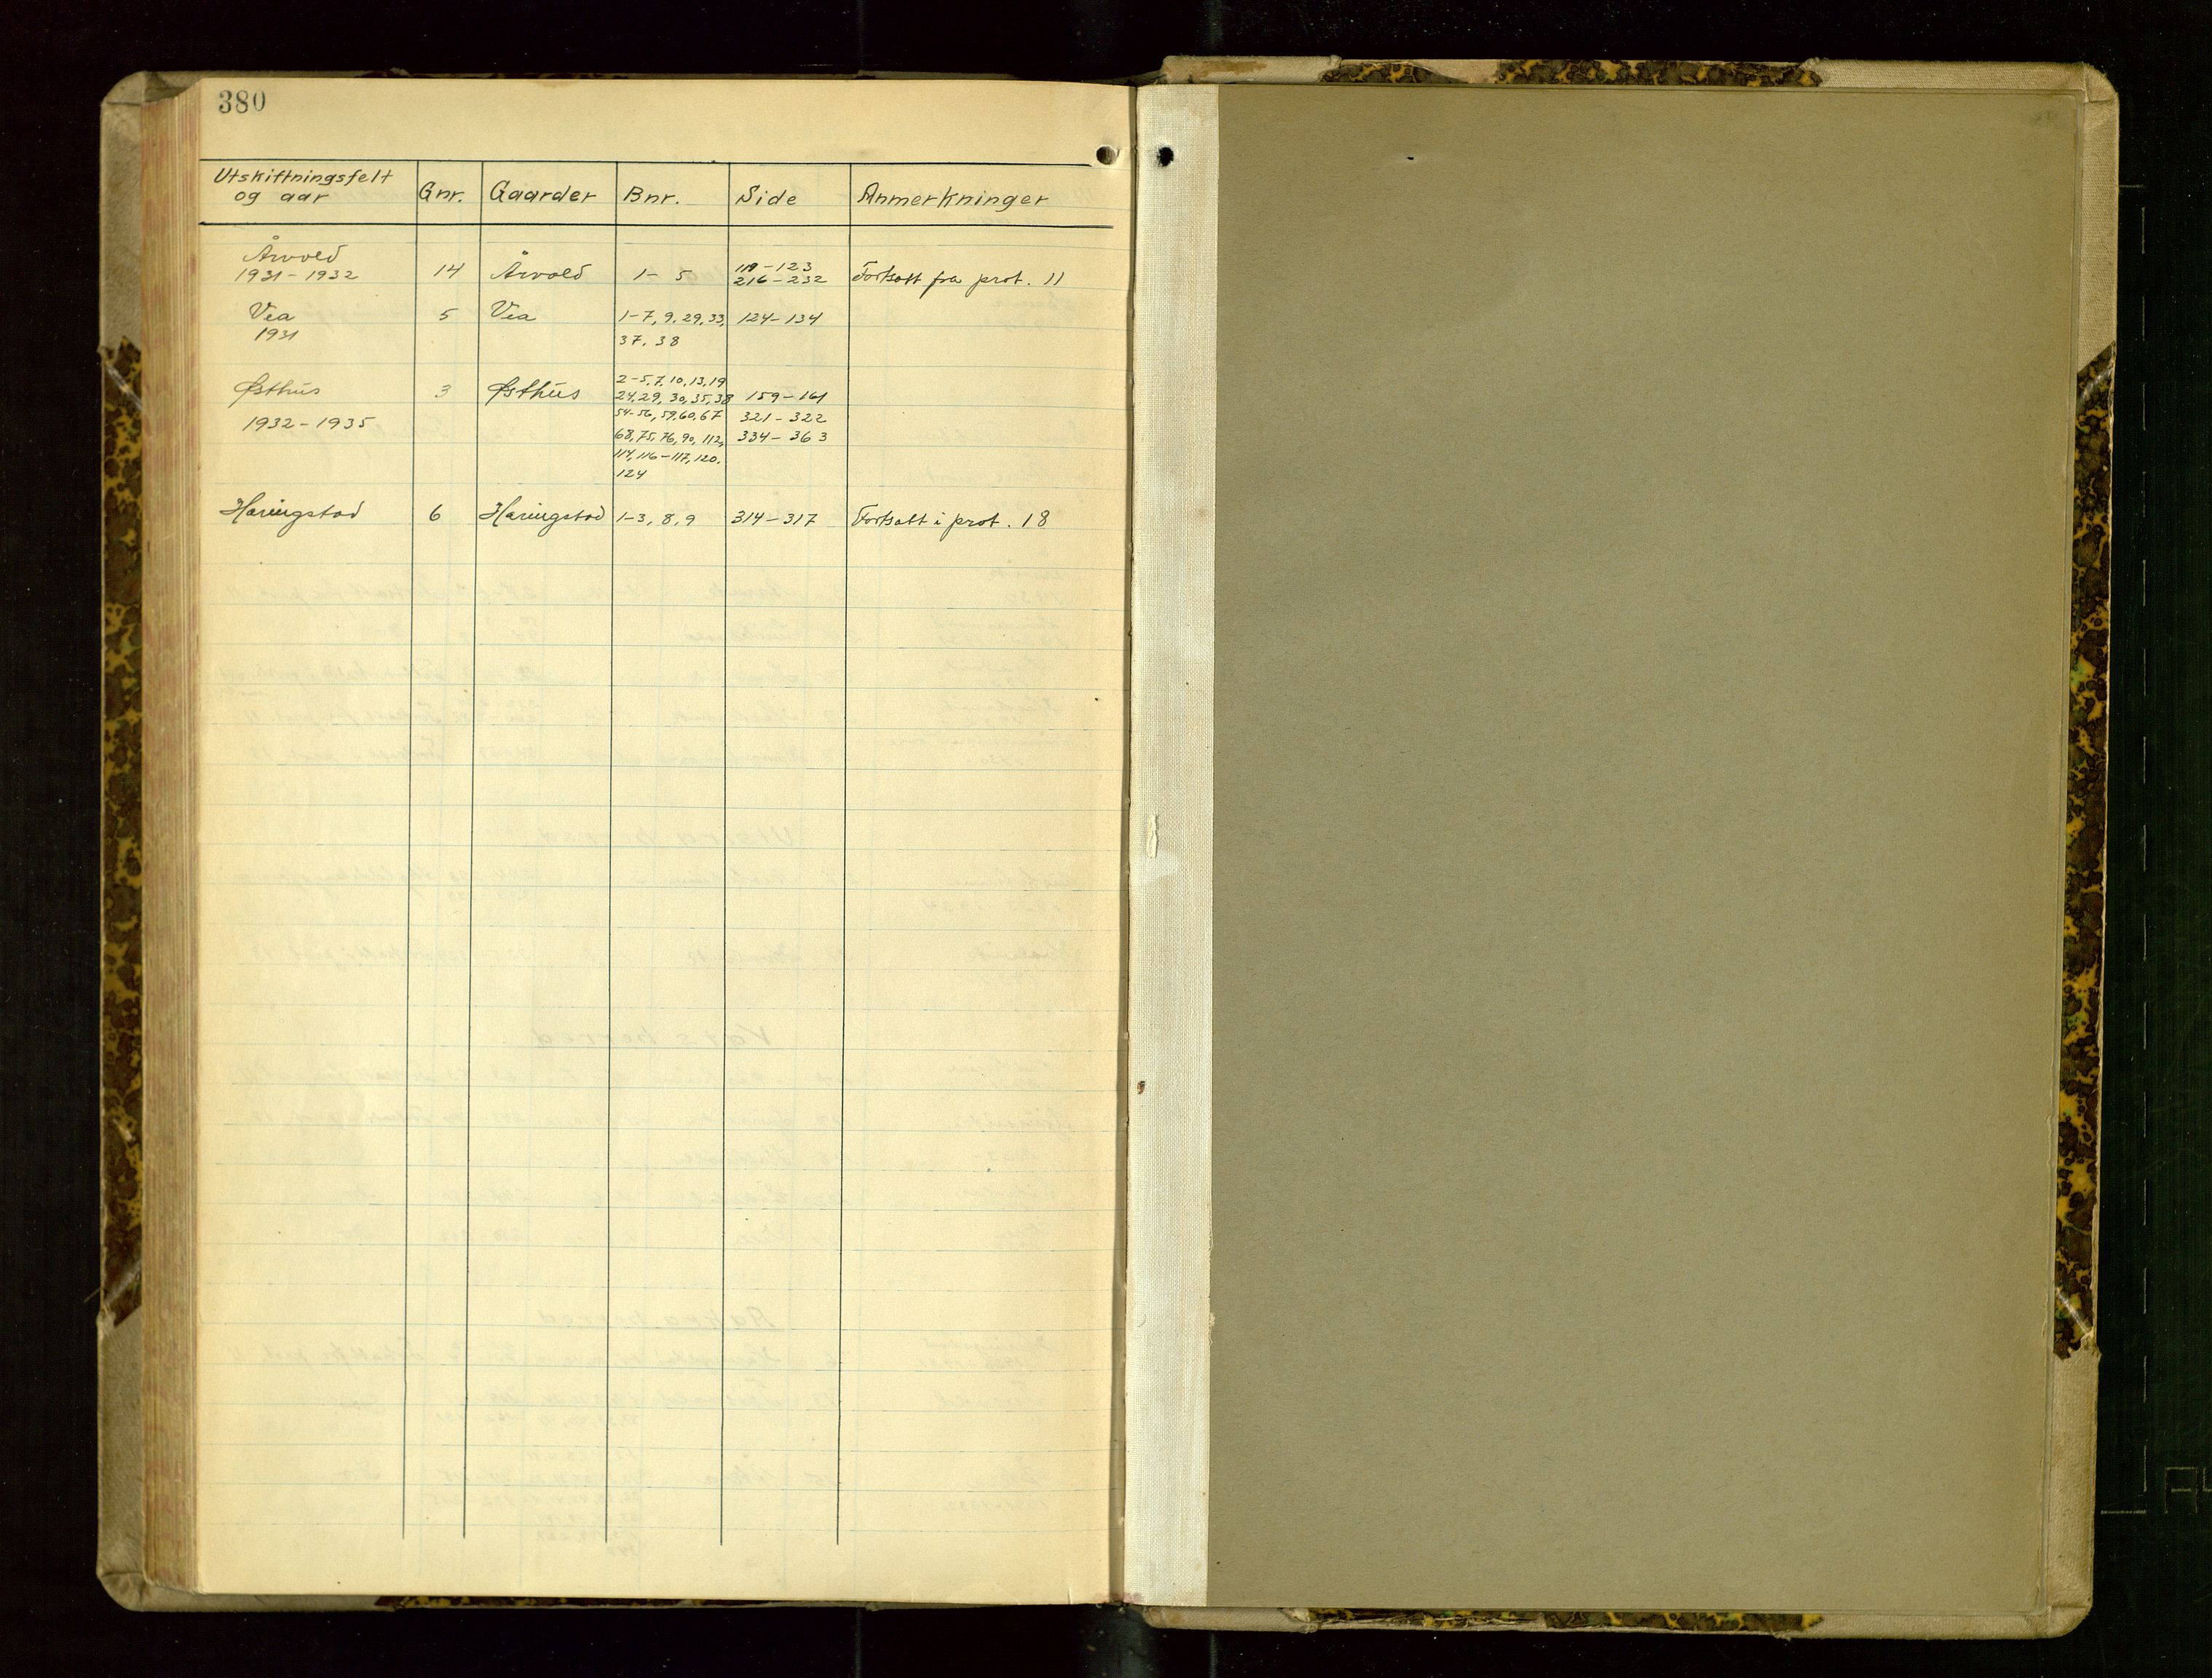 380
Utskiftningsfelt og aar Gnr. Gaarder Bnr. Side Anmerkninger
Årvold
1931-1932 14 Årvold 1- 5 119-123
216-232 Fortsatt fra prot. 11
Vea 5 Vea 1-7, 9, 29, 33, 124-134
1931 37, 38
2-5, 7, 10, 13, 19
Østhus 3 Østhus 24, 29, 30, 35, 38 159-161
1932-1935 54-56, 59, 60, 67 321-322
68, 75, 76, 90, 112, 334-363
114, 116-117, 120,
124
Haringstad 6 Haringstad 1-3, 8, 9 314-317 Fortsatt i prot. 18